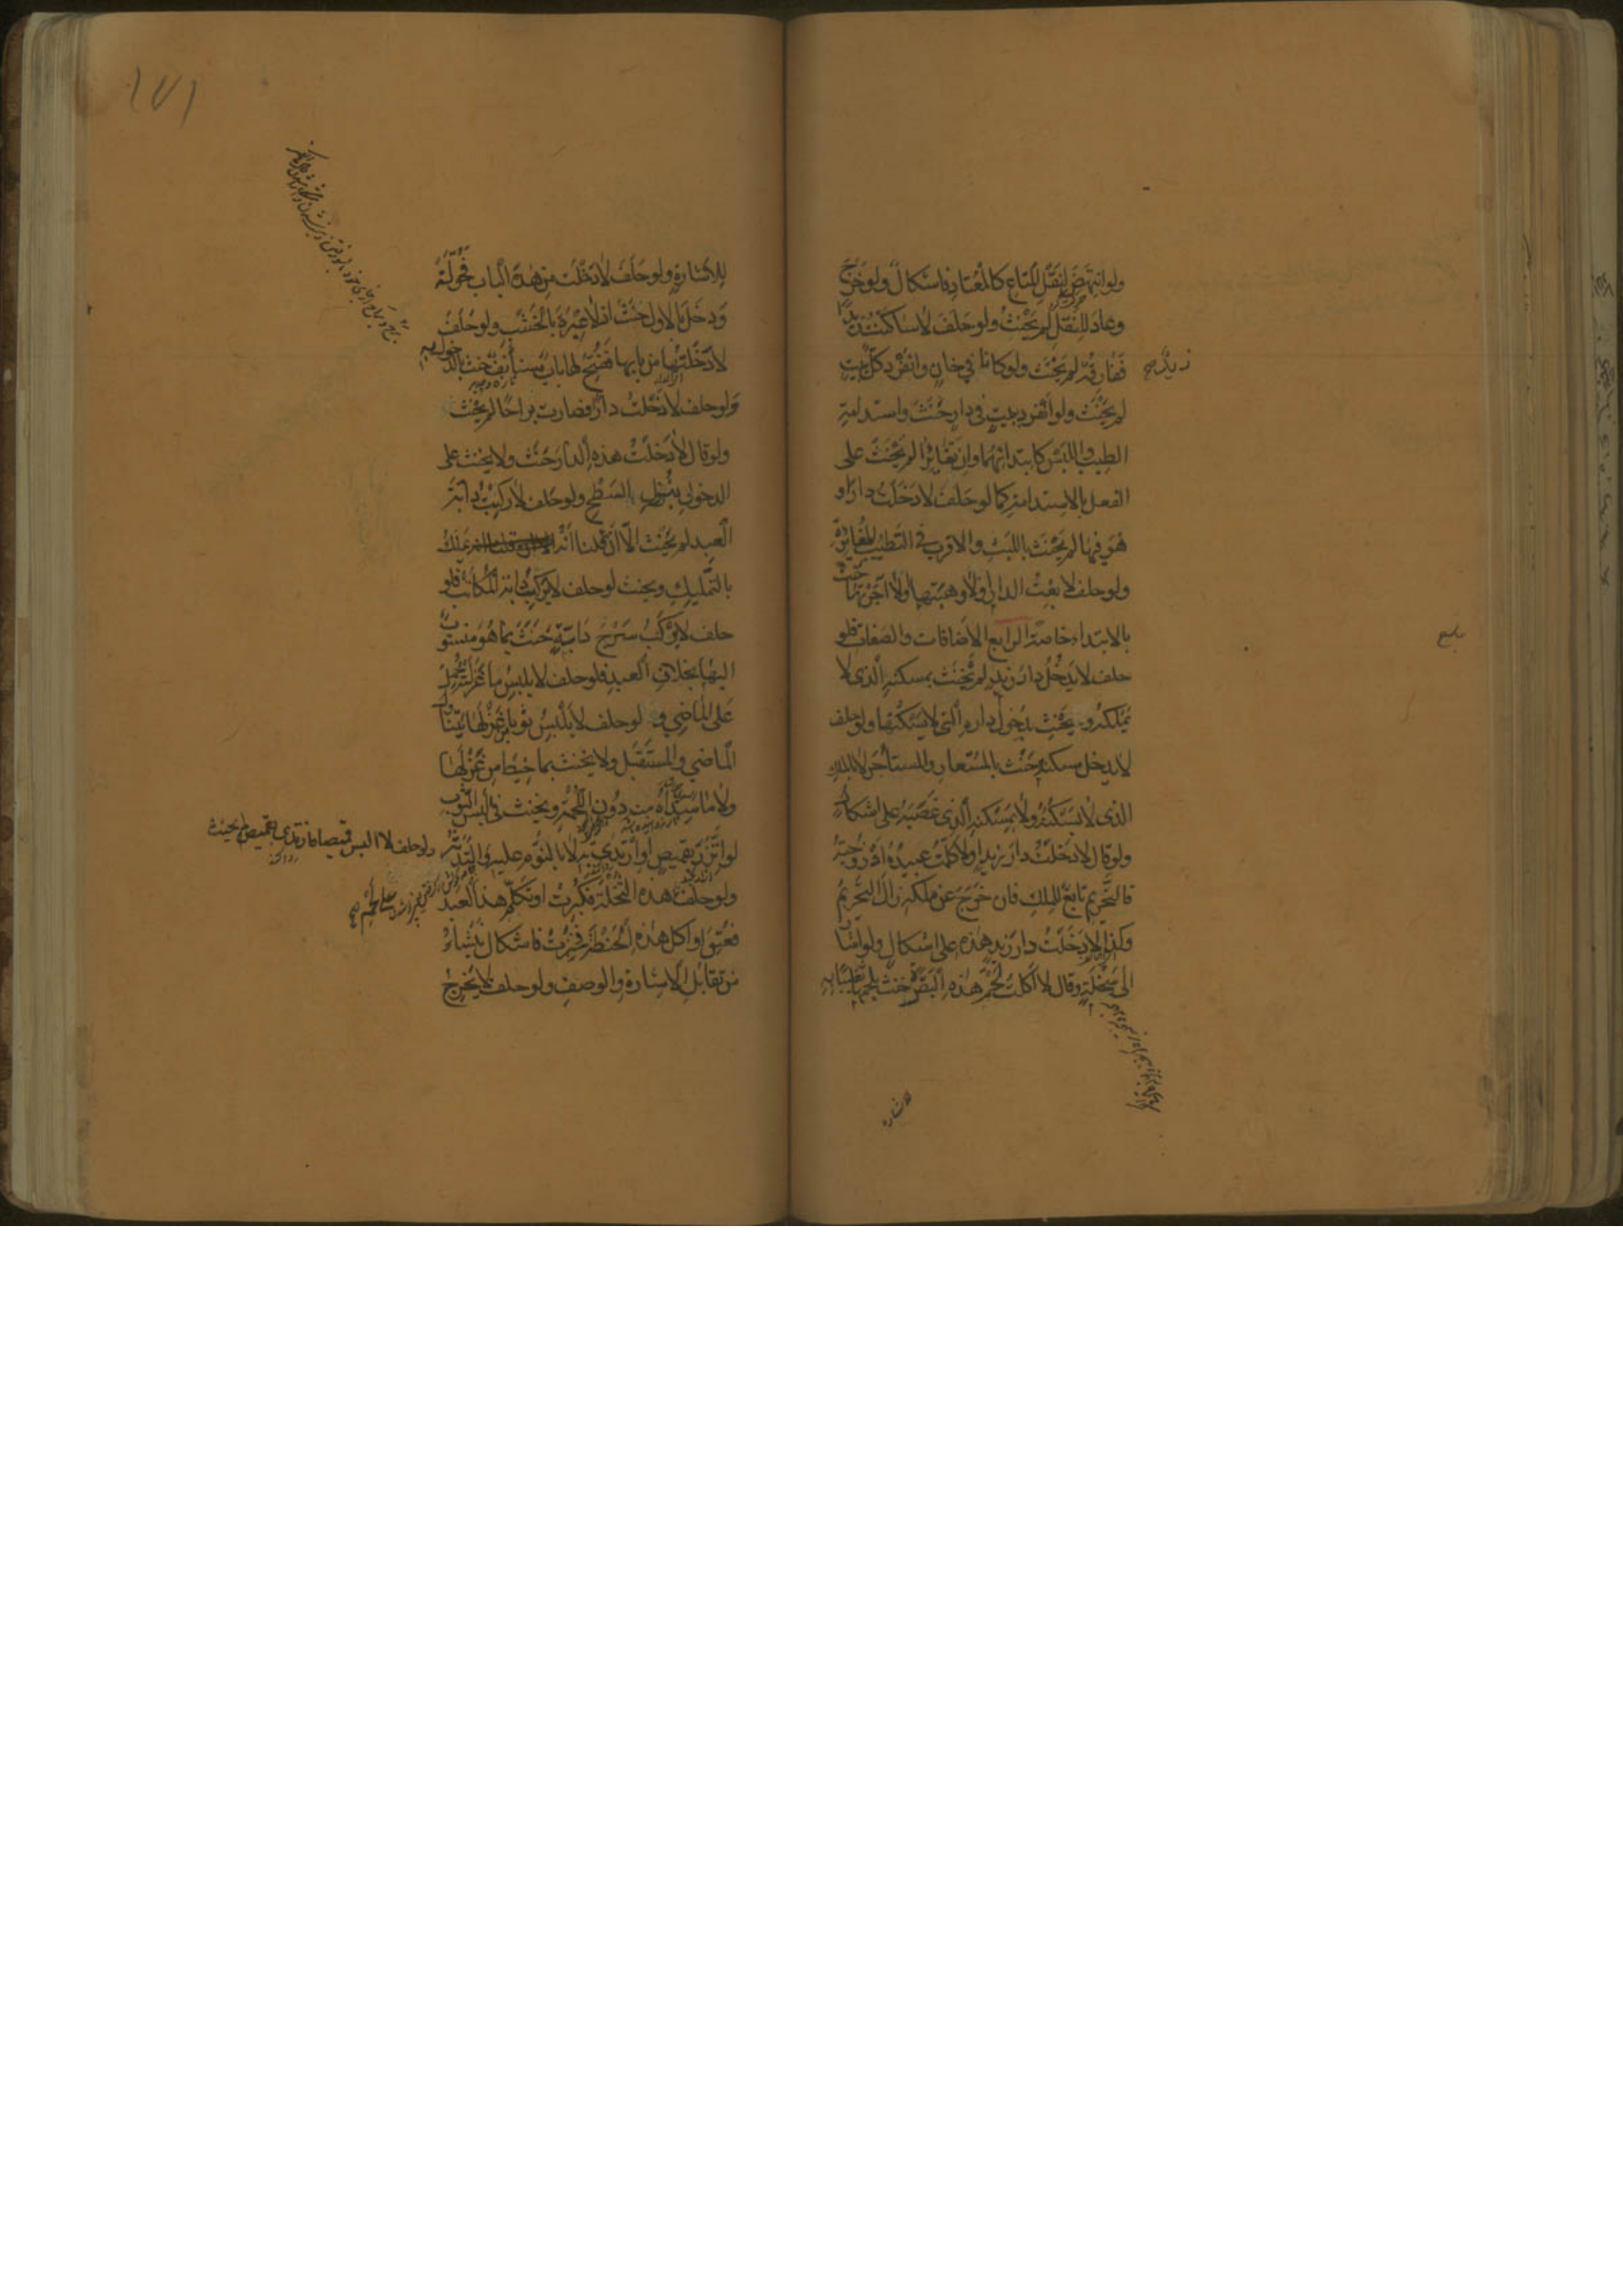 ولو انتهض لنقل المتاع كالمعتاد فاشكال ولو خرج
وعاد للنقل لم يحنث ولو حلف لاساكنت زيدا
ففارقه لم يحنث ولو كانا في خان وانفرد كل ببيت
لم يحنث ولو انفرد ببيت في دار حنث واستدامة
الطيب واللبس كابتدائهما وان تغايرا لم يحنث على
الفعل بالاستدامة كما لو حلف لا دخلت دارا و
هو فيها لم يحنث باللبث والاقرب في التطيب المغايرة
ولو حلف لا بعت الدار ولا وهبتها ولا آجرتها حنث
بالابتداء خاصة الرابع الاضافات والصفات فلو
حلف لا يدخل دار زيد لم يحنث بمسكنه الذي لا
يملكه ويحنث بدخول داره التي لا يسكنها ولو حلف
لا يدخل مسكنه حنث بالمستعار والمستأجر لا بالملك
الذي لا يسكنه ولا بمسكنه الذي غصبه على اشكال
ولو قال لا دخلت دار زيد او لا كلمت عبيده او زوجته
فالتحريم تابع للملك فان خرج عن ملكه زال التحريم
وكذا لا دخلت دار زيد هذه على اشكال ولو اشار
الى سخلة وقال لا اكلت لحم هذه البقرة حنث بلحمها تغليبا
للاشاره
بلغ
زيد صح
١٧١
للاشارة ولو حلف لا دخلت من هذه الباب فحولته
ودخل بالاول حنث اذ لا عبرة بالخشب ولو حلف
لا دخلتها من بابها ففتح لها باب مستأنف حنث بالدخول به
ولو حلف لا دخلت دارا فصارت براحا لم يحنث
ولو قال لا دخلت هذه الدار حنث ولا يحنث على
الدخول بنزول السطح ولو حلف لا ركبت دابة
العبد لم يحنث الا ان قلنا انه يملك
بالتمليك ويحنث لو حلف لا يركب دابة المكاتب فلو
حلف لا يركب سرج دابة حنث بما هو منسوب
اليها بخلاف العبد فلو حلف لا يلبس ما غزلته حمل
على الماضي ولو حلف لا يلبس ثوبا من غزلها تناول
الماضي والمستقبل ولا يحنث بما خيط من غزلها
ولا ما سداه منه دون اللحمة ويحنث في لبس الثوب
لو اتزر بقميص او ارتدى به لا بالنوم عليه والتدثر
ولو حلف لا البس قميصا فارتدى بقميص لم يحنث
ولو حلف هذه النخلة فكبرت او تكلم هذا العبد
فعتق او اكل هذه الحنطة فخبزت فاشكال ينشاء
من تقابل الاشارة والوصف ولو حلف لا يخرج